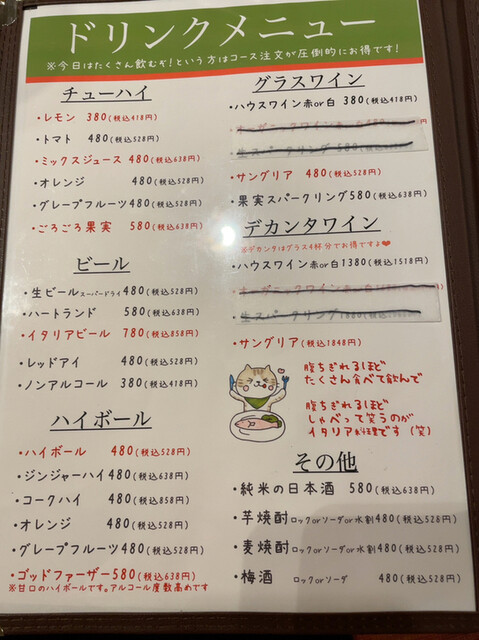 ドリンクメニュー
※今日はたくさん飲むぞ!という方はコース注文が圧倒的にお得です!
チューハイ
・レモン 380(税込418円)
・トマト 480(税込528円)
・ミックスジュース 480(税込638円)
・オレンジ 480(税込528円)
・グレープフルーツ 480(税込528円)
・ごろごろ果実 580(税込638円)
ビール
・生ビール スーパードライ 480(税込528円)
・ハートランド 580(税込638円)
・イタリアビール 780(税込858円)
・レッドアイ 480(税込528円)
・ノンアルコール 380(税込418円)
ハイボール
・ハイボール 480(税込528円)
・ジンジャーハイ 480(税込638円)
・コークハイ 480(税込858円)
・オレンジ 480(税込528円)
・グレープフルーツ 480(税込528円)
・ゴッドファーザー 580(税込638円)
※甘口のハイボールです。アルコール度数高めです
グラスワイン
・ハウスワイン赤or白 380(税込418円)
・オーガニックワイン赤or白
・生スパークリング 580
・サングリア 480(税込528円)
・果実スパークリング 580(税込638円)
デカンタワイン
※デカンタはグラス4杯分でお得ですよ❤
・ハウスワイン赤or白 1380(税込1518円)
・オーガニックワイン赤or白
・生スパークリング
・サングリア(税込1848円)
腹ちぎれるほど
たくさん食べて飲んで
腹ちぎれるほど
しゃべって笑うのが
イタリア料理です(笑)
その他
・純米の日本酒 580(税込638円)
・芋焼酎 ロックorソーダor水割 480(税込528円)
・麦焼酎 ロックorソーダor水割 480(税込528円)
・梅酒 ロックorソーダ 480(税込528円)